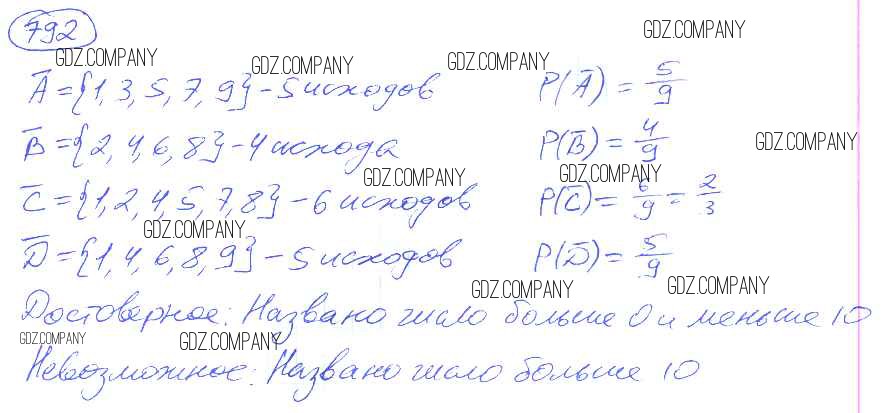 792
GDZ.COMPANY
GDZ.COMPANY GDZ.COMPANY GDZ.COMPANY
A̅ = {1, 3, 5, 7, 9} - 5 исходов P(A̅) = 5/9
B̅ = {2, 4, 6, 8} - 4 исхода P(B̅) = 4/9 GDZ.COMPANY
GDZ.COMPANY GDZ.COMPANY
C̅ = {1, 2, 4, 5, 7, 8} - 6 исходов P(C̅) = 6/9 = 2/3
GDZ.COMPANY
D̅ = {1, 4, 6, 8, 9} - 5 исходов P(D̅) = 5/9
GDZ.COMPANY GDZ.COMPANY
Достоверное: Названо число больше 0 и меньше 10
GDZ.COMPANY GDZ.COMPANY
Невозможное: Названо число больше 10